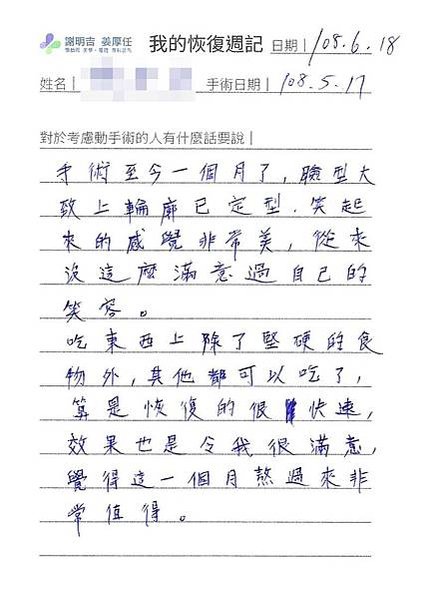 謝明吉 姜厚任
我的恢復週記 日期| 108.6.18
姓名| 手術日期| 108.5.17
對於考慮動手術的人有什麼話要說|
手術至今一個月了,臉型大
致上輪廓已定型.笑起
來的感覺非常美,從來
沒這麼滿意過自己的
笑容。
吃東西上除了堅硬的食
物外,其他都可以吃了,
算是恢復的很快速,
效果也是令我很滿意,
覺得這一個月熬過來非
常值得。